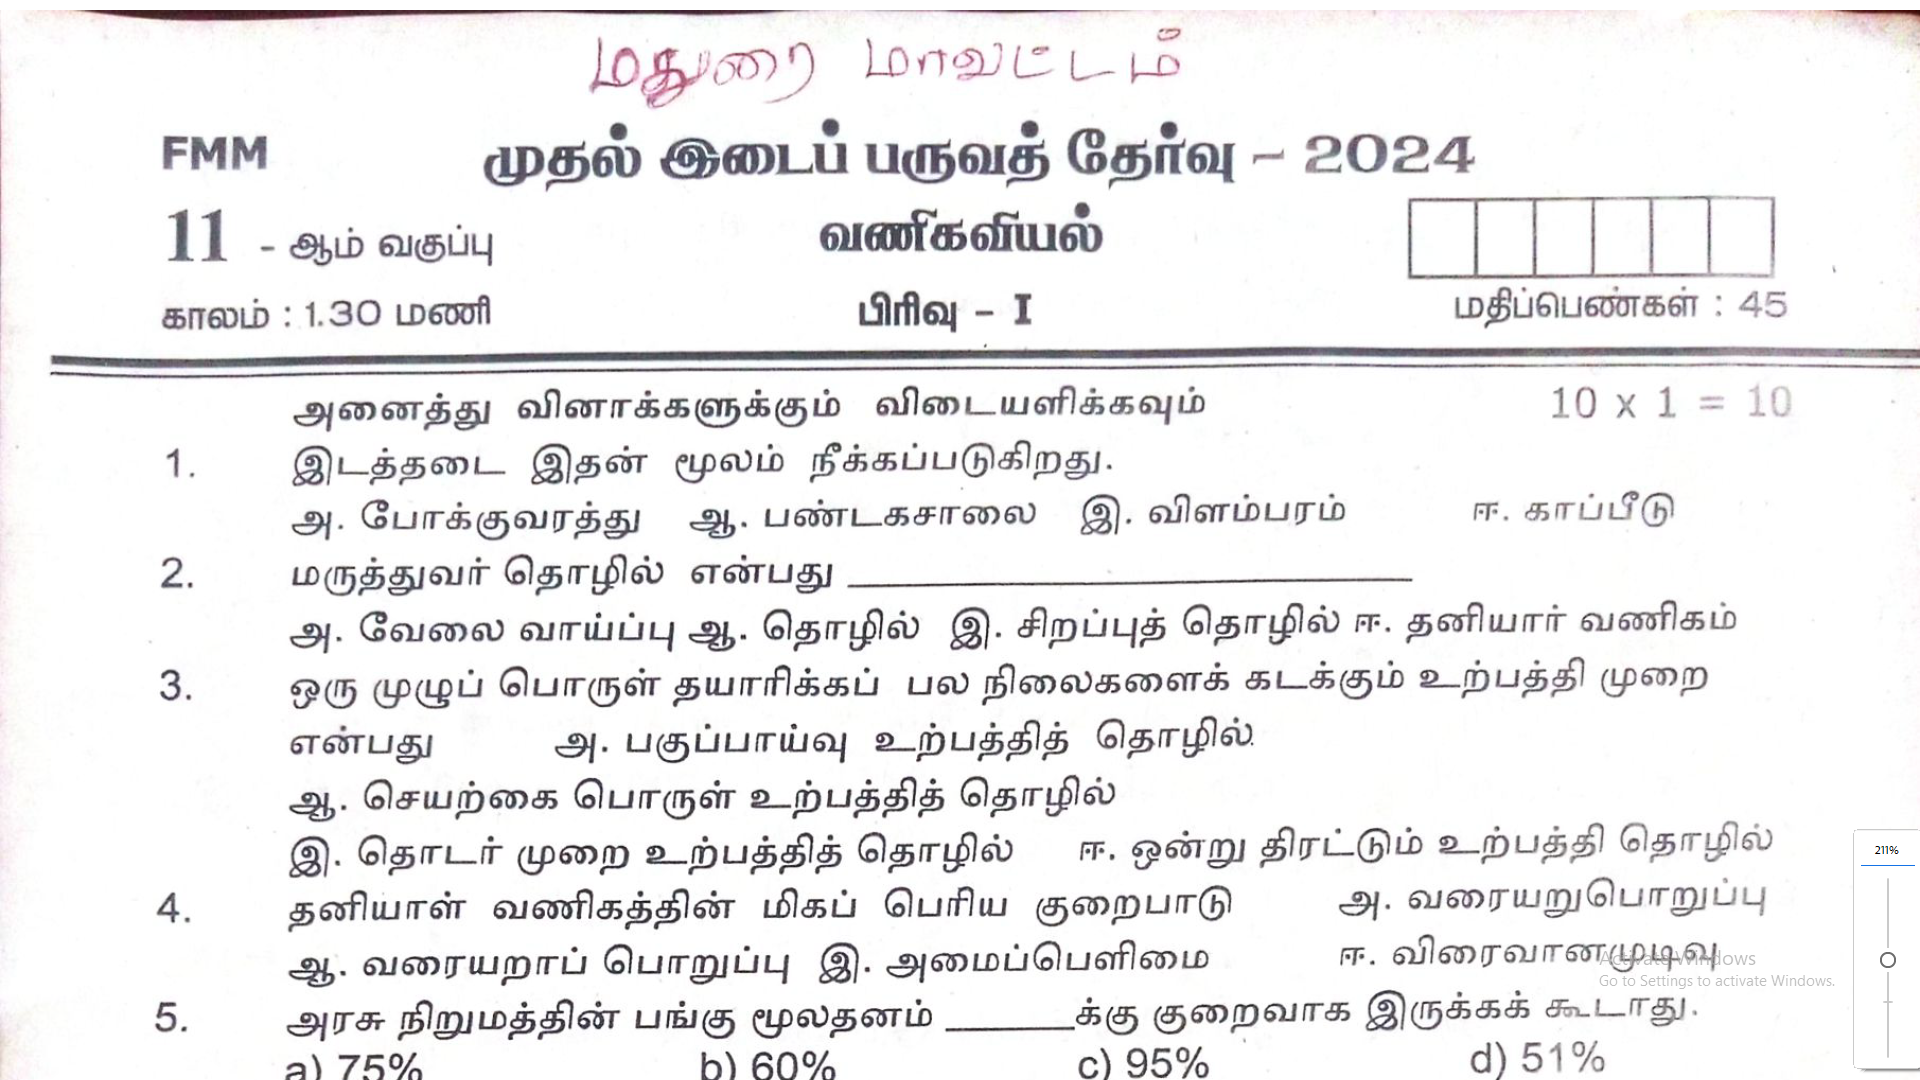 மதுரை மாவட்டம்
FMM முதல் இடைப் பருவத் தேர்வு – 2024
11 - ஆம் வகுப்பு வணிகவியல்
காலம் : 1.30 மணி பிரிவு – I மதிப்பெண்கள் : 45
அனைத்து வினாக்களுக்கும் விடையளிக்கவும் 10 x 1 = 10
1. இடத்தடை இதன் மூலம் நீக்கப்படுகிறது.
அ. போக்குவரத்து ஆ. பண்டகசாலை இ. விளம்பரம் ஈ. காப்பீடு
2. மருத்துவர் தொழில் என்பது ____________
அ. வேலை வாய்ப்பு ஆ. தொழில் இ. சிறப்புத் தொழில் ஈ. தனியார் வணிகம்
3. ஒரு முழுப் பொருள் தயாரிக்கப் பல நிலைகளைக் கடக்கும் உற்பத்தி முறை
என்பது அ. பகுப்பாய்வு உற்பத்தித் தொழில்.
ஆ. செயற்கை பொருள் உற்பத்தித் தொழில்
இ. தொடர் முறை உற்பத்தித் தொழில் ஈ. ஒன்று திரட்டும் உற்பத்தி தொழில்
211%
4. தனியாள் வணிகத்தின் மிகப் பெரிய குறைபாடு அ. வரையறுபொறுப்பு
ஆ. வரையறாப் பொறுப்பு இ. அமைப்பெளிமை ஈ. விரைவானமுடிவு
Activate Windows
Go to Settings to activate Windows.
5. அரசு நிறுமத்தின் பங்கு மூலதனம் ______க்கு குறைவாக இருக்கக் கூடாது.
a) 75% b) 60% c) 95% d) 51%